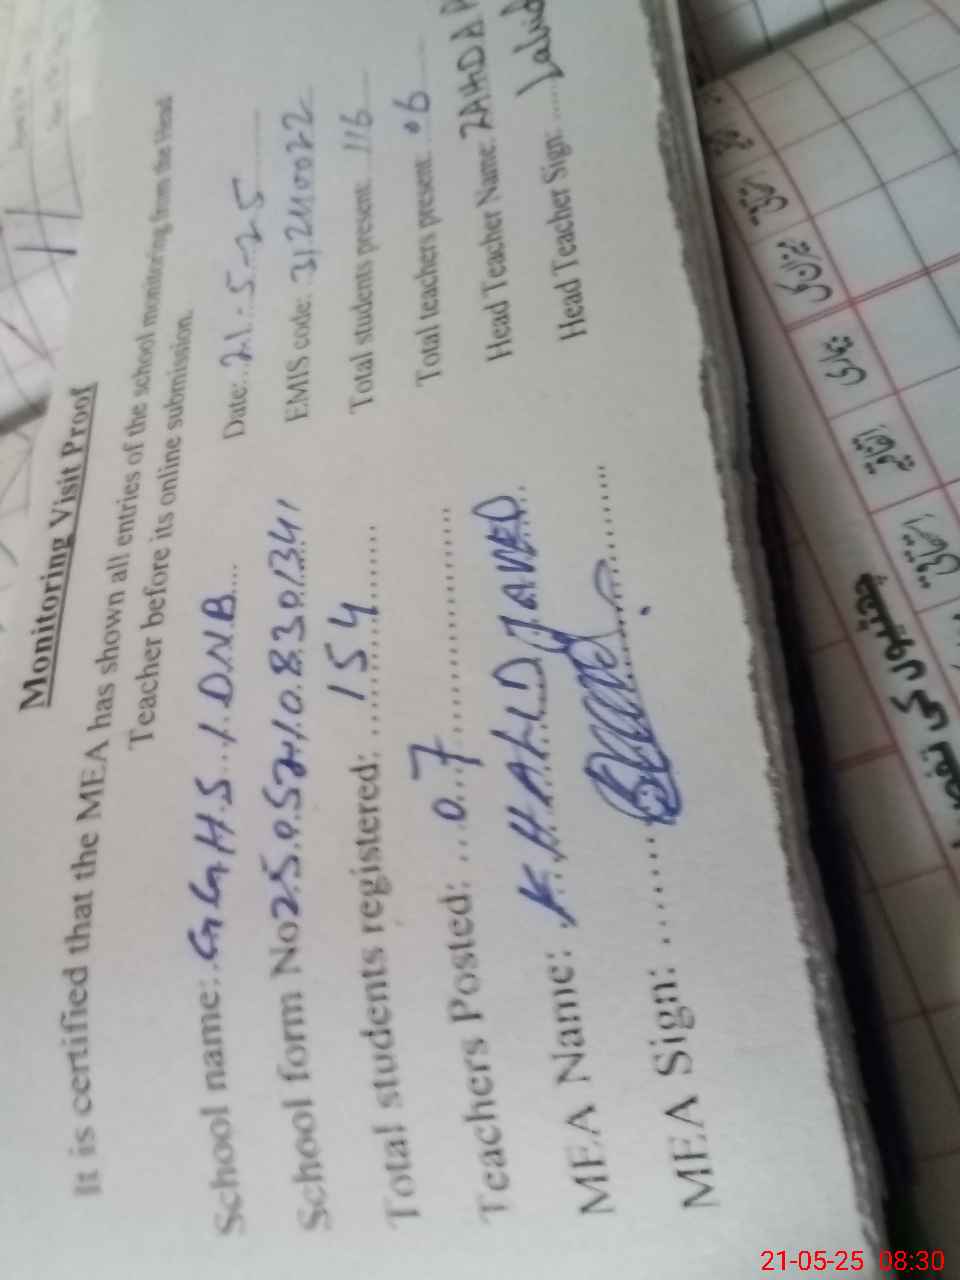 Monitoring Visit Proof
It is certified that the MEA has shown all entries of the school monitoring from the Head
Teacher before its online submission.
School name: GGHS 1.DNB Date: 21-5-25
School form No 25052108301341 EMIS code: 31240022
Total students registered: 154 Total students present: 116
Teachers Posted: 07 Total teachers present: 06
MEA Name: KHALID JAVED Head Teacher Name: ZAHIDA P
MEA Sign: Head Teacher Sign:
چھٹیوں کی
رخصتی
اتفاقیہ
بیماری
21-05-25 08:30